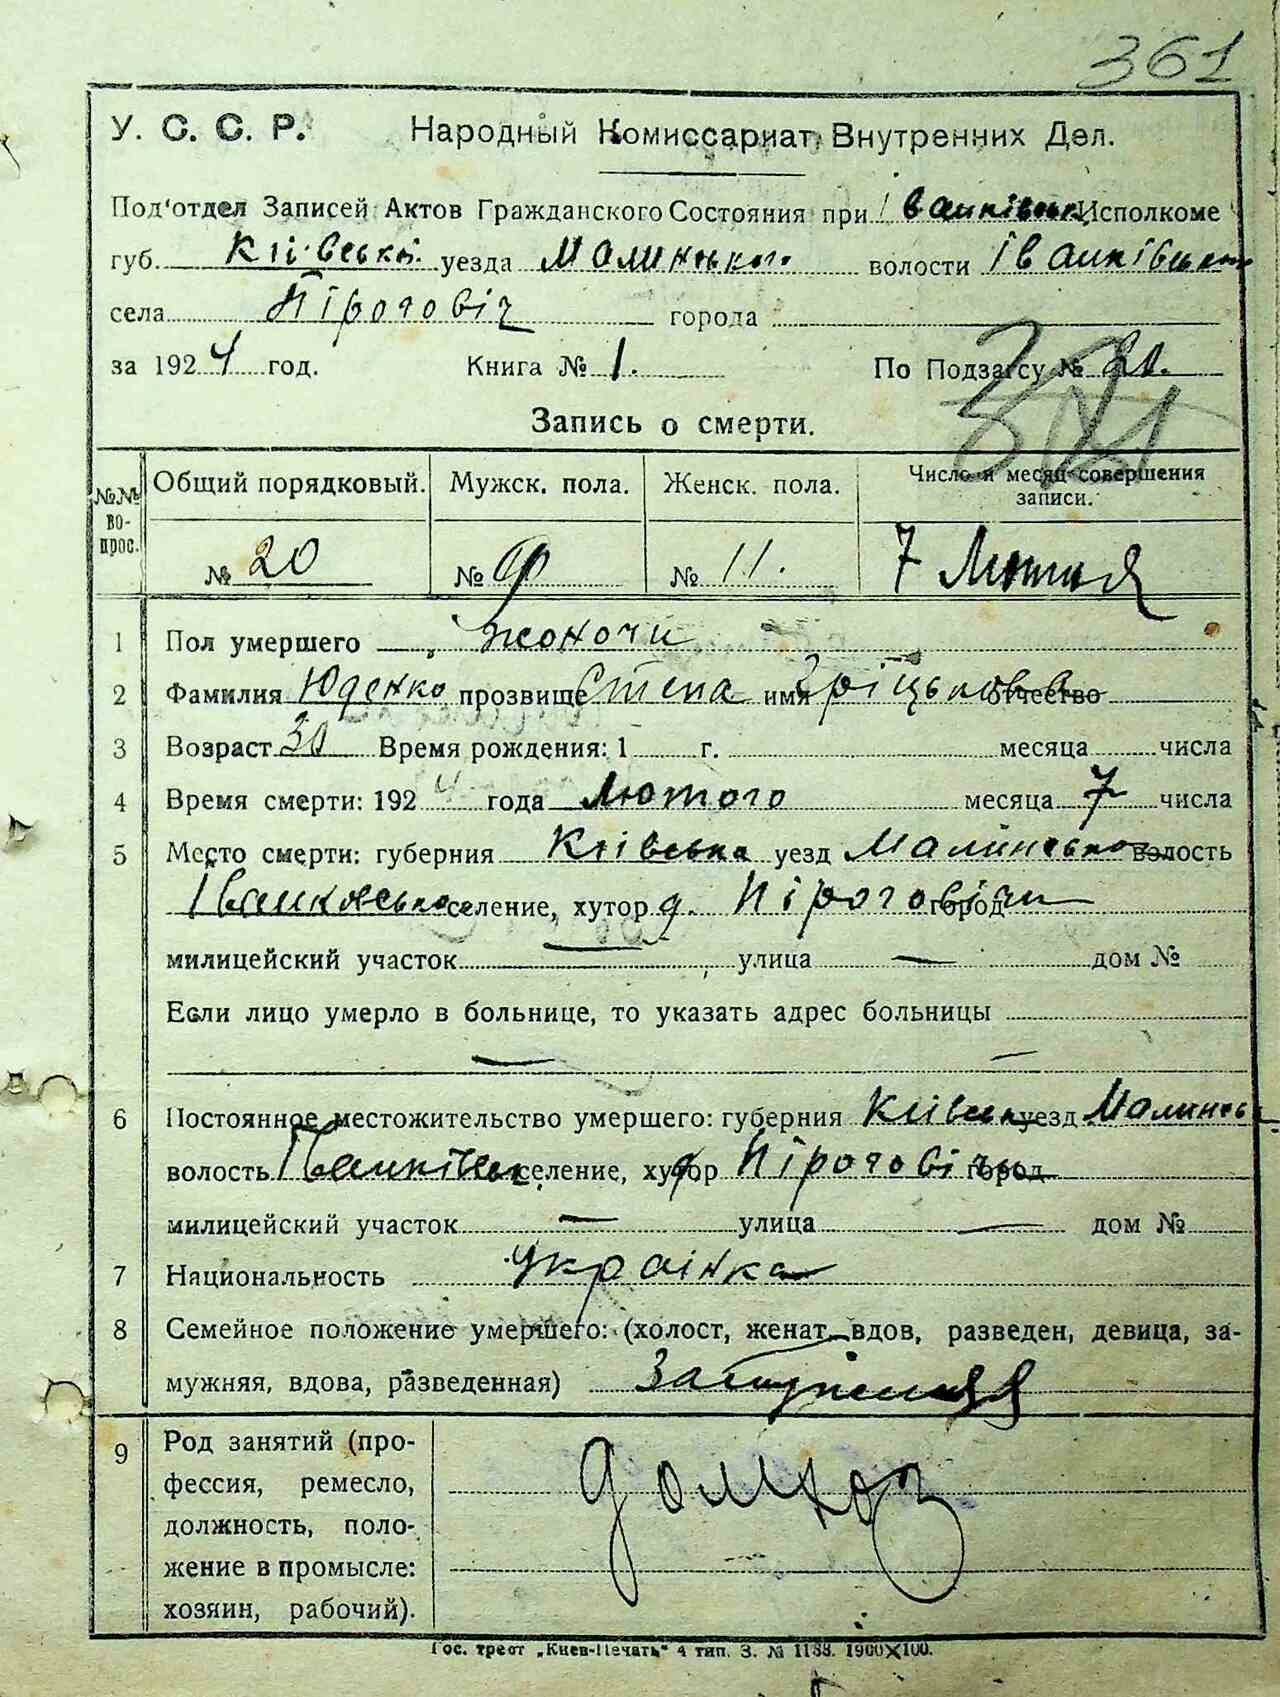 361
У. С. С. Р. Народный Комиссариат Внутренних Дел.
Под'отдел Записей Актов Гражданского Состояния при Іванківськ. Исполкоме
губ. Київської уезда Малинського волости Іванківської
села Піроговіч города
за 1924 год. Книга № 1. По Подзагсу № 20.
Запись о смерти.
№№ вопрос. Общий порядковый. Мужск. пола. Женск. пола. Число и месяц совершения записи.
№ 20 № № 11. 7 Лютня
1 Пол умершего жоночи
2 Фамилия Юденко прозвище Степа имя Гріцькова отчество
3 Возраст 30 Время рождения: 1 г. месяца числа
4 Время смерти: 1924 года Лютого месяца 7 числа
5 Место смерти: губерния Київська уезд Малинсько волость
Іванковсько селение, хутор д. Піроговічи город
милицейский участок — улица — дом №
Если лицо умерло в больнице, то указать адрес больницы
— —
6 Постоянное местожительство умершего: губерния Київськ уезд Малинсь
волость Іванківськ селение, хутор Піроговічи город
милицейский участок — улица — дом №
7 Национальность Українка
8 Семейное положение умершего: (холост, женат, вдов, разведен, девица, за-
мужняя, вдова, разведенная) Замужняя
9 Род занятий (про-
фессия, ремесло,
должность, поло-
жение в промысле:
хозяин, рабочий).
домхоз
Гос. трест „Киев-Печать“ 4 тип. З. № 1188. 1900X100.